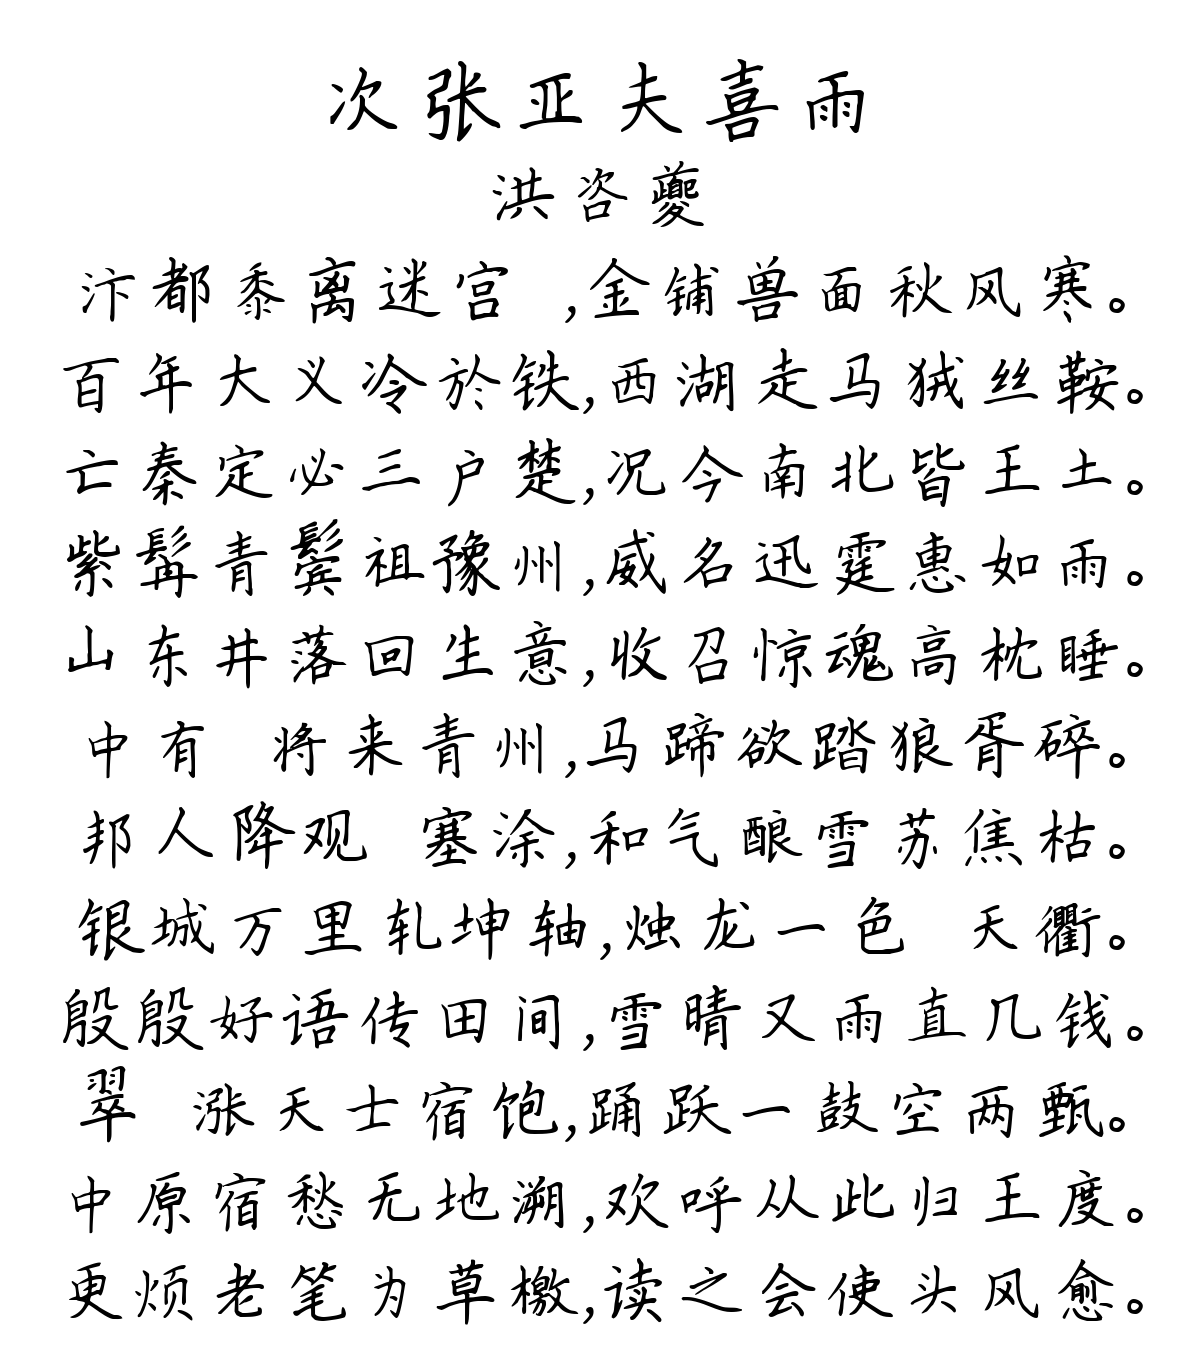 次张亚夫喜雨
洪咨夔
汴都黍离迷宫 ,金铺兽面秋风寒。
百年大义冷於铁,西湖走马狨丝鞍。
亡秦定必三户楚,况今南北皆王土。
紫髯青鬓祖豫州,威名迅霆惠如雨。
山东井落回生意,收召惊魂高枕睡。
中有 将来青州,马蹄欲踏狼胥碎。
邦人降观 塞涂,和气酿雪苏焦枯。
银城万里轧坤轴,烛龙一色 天衢。
殷殷好语传田间,雪晴又雨直几钱。
翠 涨天士宿饱,踊跃一鼓空两甄。
中原宿愁无地溯,欢呼从此归王度。
更烦老笔为草檄,读之会使头风愈。